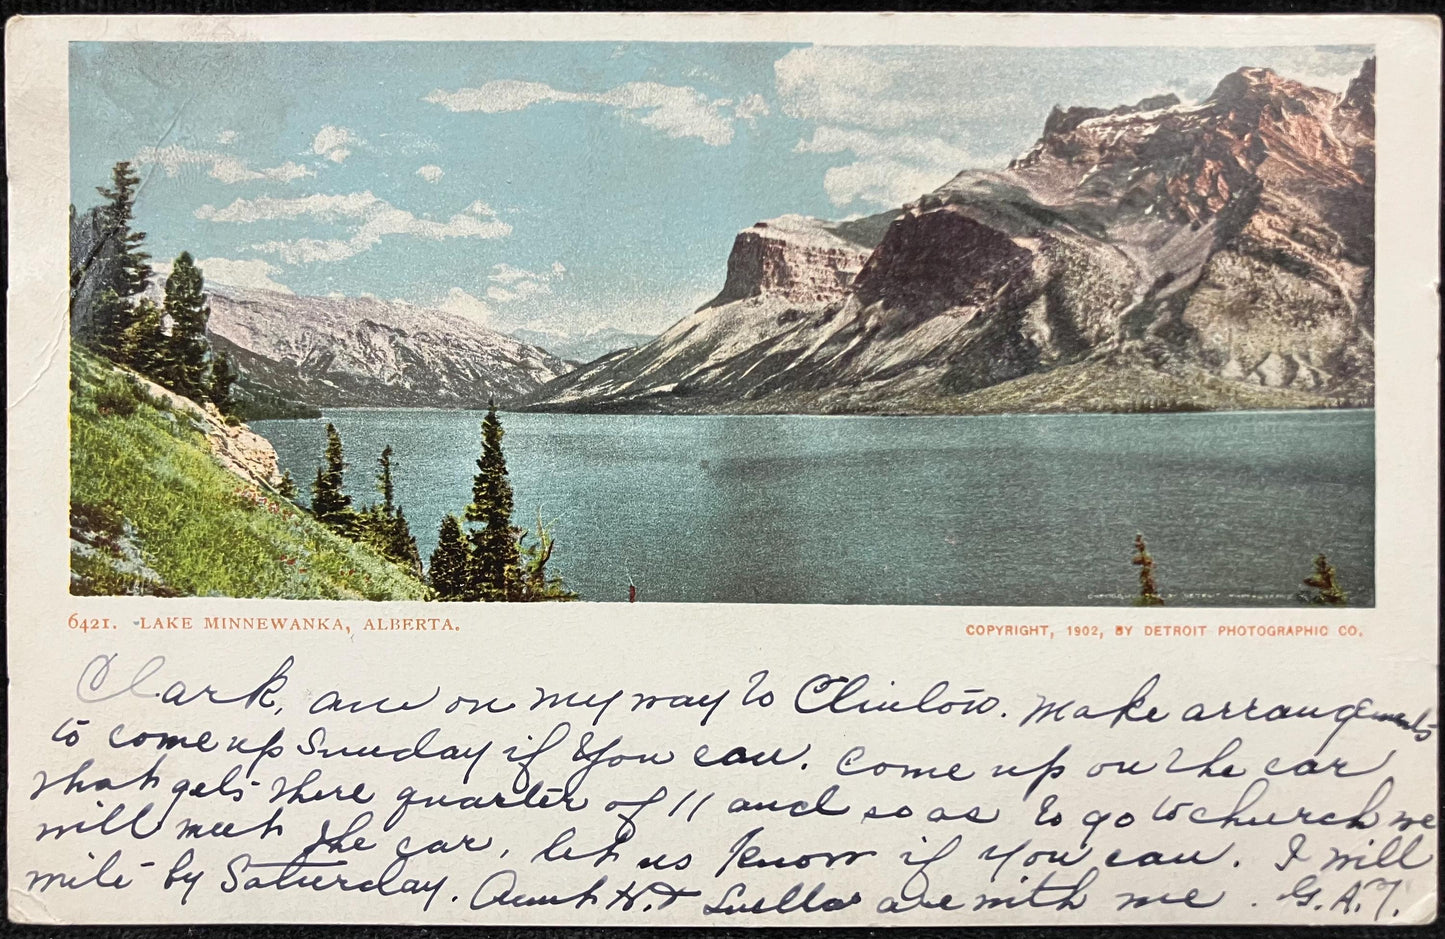 6421. LAKE MINNEWANKA, ALBERTA.
COPYRIGHT, 1902, BY DETROIT PHOTOGRAPHIC CO.
Clark, am on my way to Clinton. Make arrangements
to come up Sunday if you can. Come up on the car
that gets there quarter of 11 and so as to go to church we
will meet the car, let us know if you can. I will
write by Saturday. Aunt H. & Luella are with me. G.A.T.